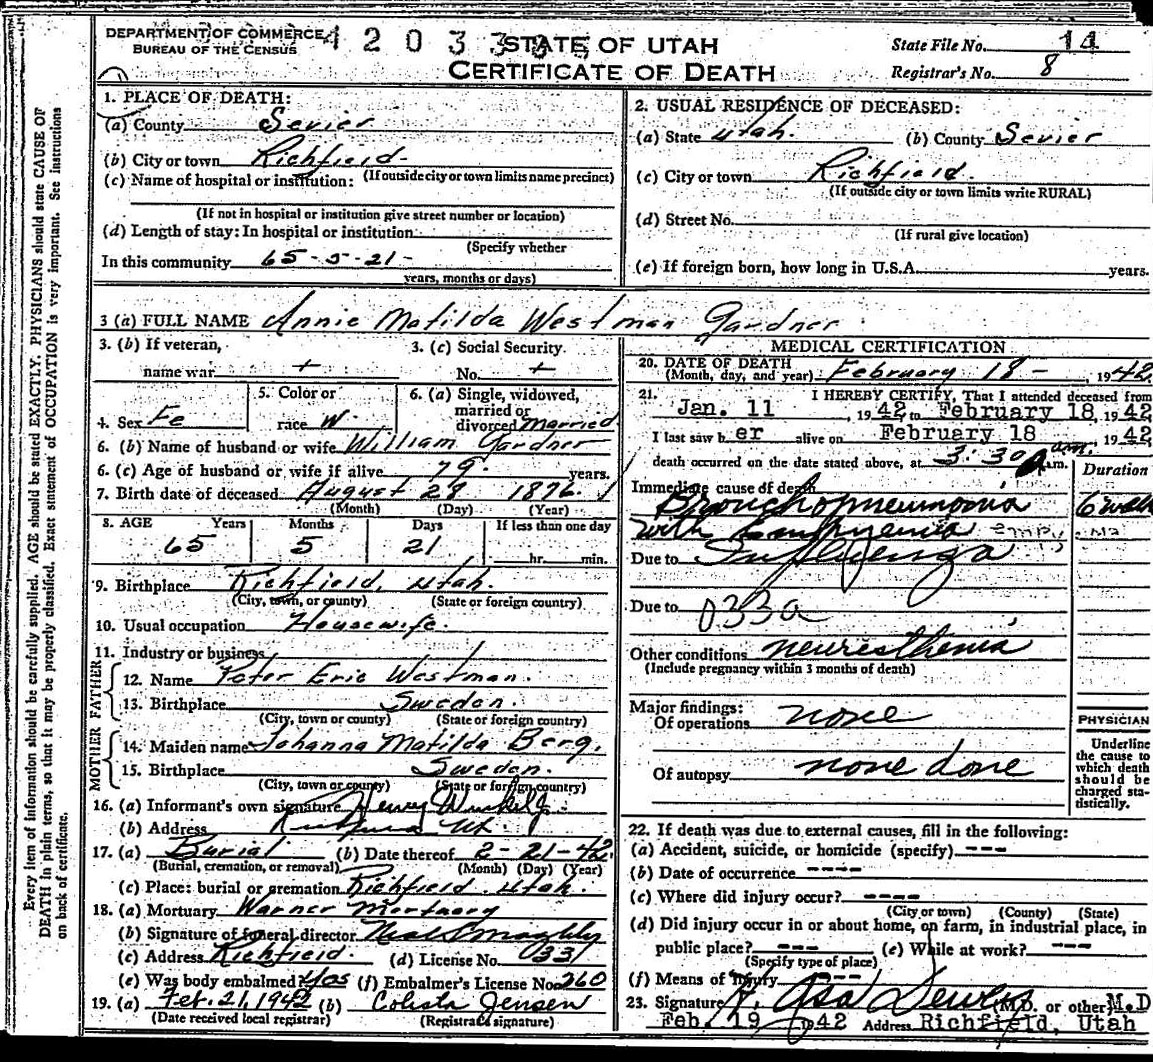 DEPARTMENT OF COMMERCE
BUREAU OF THE CENSUS
STATE OF UTAH
CERTIFICATE OF DEATH
State File No. 14
Registrar's No. 8
Every item of information should be carefully supplied. AGE should be stated EXACTLY. PHYSICIANS should state CAUSE OF
DEATH in plain terms, so that it may be properly classified. Exact statement of OCCUPATION is very important. See instructions
on back of certificate.
1. PLACE OF DEATH:
(a) County Sevier
(b) City or town Richfield
(If outside city or town limits name precinct)
(c) Name of hospital or institution:
(If not in hospital or institution give street number or location)
(d) Length of stay: In hospital or institution
(Specify whether
In this community 65-5-21-
years, months or days)
2. USUAL RESIDENCE OF DECEASED:
(a) State Utah. (b) County Sevier
(c) City or town Richfield.
(If outside city or town limits write RURAL)
(d) Street No.
(If rural give location)
(e) If foreign born, how long in U.S.A. years.
3 (a) FULL NAME Annie Matilda Westman Gardner
3. (b) If veteran,
name war +
3. (c) Social Security
No. +
4. Sex Fe
5. Color or
race W.
6. (a) Single, widowed,
married or
divorced married
6. (b) Name of husband or wife William Gardner
6. (c) Age of husband or wife if alive 79. years.
7. Birth date of deceased August 28 1876
(Month) (Day) (Year)
8. AGE Years Months Days If less than one day
65 5 21 hr. min.
9. Birthplace Richfield, Utah.
(City, town, or county) (State or foreign country)
10. Usual occupation Housewife.
11. Industry or business
FATHER
12. Name Peter Eric Westman.
13. Birthplace Sweden.
(City, town or county) (State or foreign country)
MOTHER
14. Maiden name Johanna Matilda Berg.
15. Birthplace Sweden.
(City, town or county) (State or foreign country)
16. (a) Informant's own signature Henry
(b) Address Ut.
17. (a) Burial (b) Date thereof 2-21-42
(Burial, cremation, or removal) (Month) (Day) (Year)
(c) Place: burial or cremation Richfield Utah.
18. (a) Mortuary Warner Mortuary
(b) Signature of funeral director
(c) Address Richfield. (d) License No. 033
(e) Was body embalmed Yes (f) Embalmer's License No. 260
19. (a) Feb. 21, 1942 (b) Colista Jensen
(Date received local registrar) (Registrar's signature)
MEDICAL CERTIFICATION
20. DATE OF DEATH
(Month, day, and year) February 18-, 1942
21. I HEREBY CERTIFY, That I attended deceased from
Jan. 11, 1942 to February 18, 1942
I last saw her alive on February 18, 1942
death occurred on the date stated above, at 3:30 a.m.
Duration
Immediate cause of death
Bronchopneumonia 6 weeks
with Empyemia
Due to Influenza
Due to 033a
Other conditions neuresthenia
(Include pregnancy within 3 months of death)
Major findings:
Of operations none
Of autopsy none done
PHYSICIAN
Underline
the cause to
which death
should be
charged sta-
tistically.
22. If death was due to external causes, fill in the following:
(a) Accident, suicide, or homicide (specify) ---
(b) Date of occurrence ----
(c) Where did injury occur? ----
(City or town) (County) (State)
(d) Did injury occur in or about home, on farm, in industrial place, in
public place? --- (e) While at work? ---
(Specify type of place)
(f) Means of Injury ---
23. Signature Asa Dewey (M.D. or other) M.D
Feb. 19 1942 Address Richfield, Utah